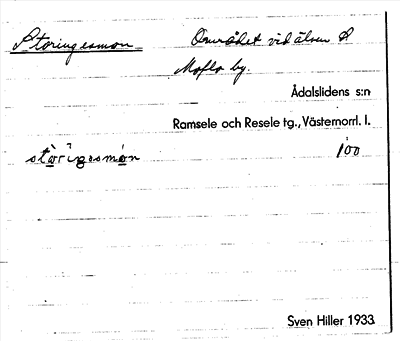 Storingesmon Området vid älven S
Moflo by.
Ådalslidens s:n
Ramsele och Resele tg., Västernorrl. l.
100
Sven Hiller 1933